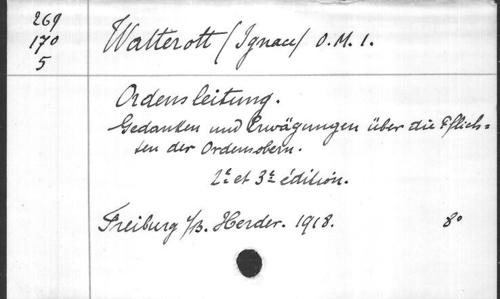 269
170
5
Watterott (Ignace) O.M.I.
Ordensleitung.
Gedanken und Erwägungen über die Pflich=
ten der Ordensobern.
2e et 3e édition.
Freiburg i/B. Herder. 1918. 8°